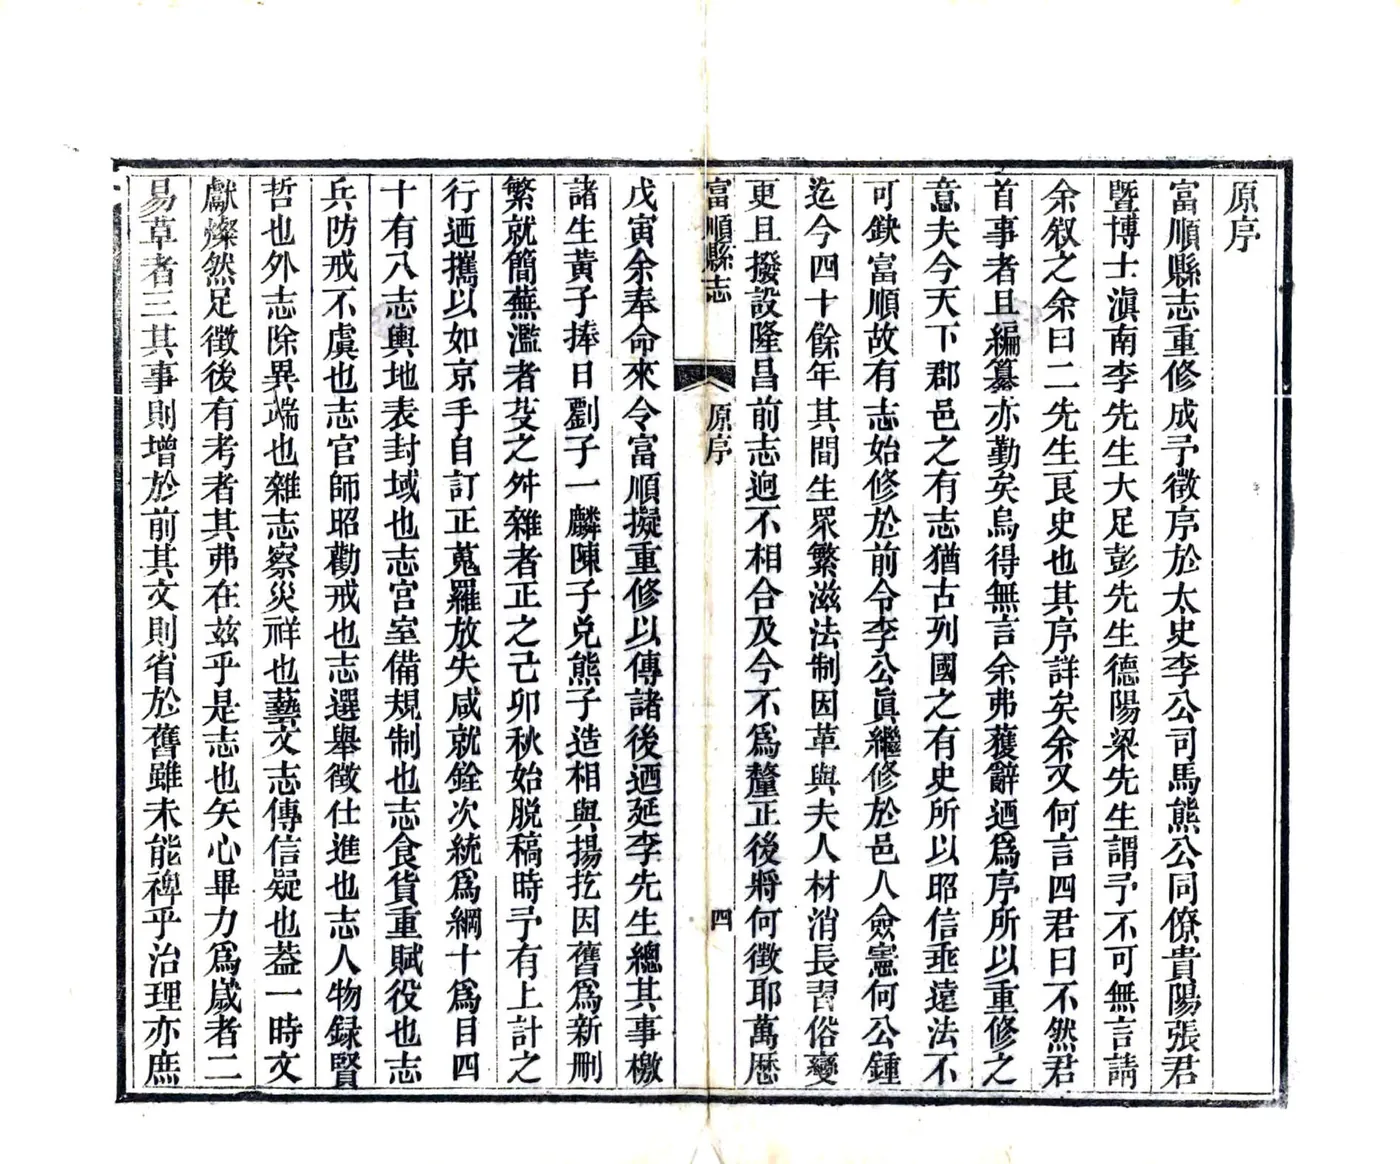 原序
富順縣志重修成予徵序於太史李公司馬熊公同僚貴陽張君
暨博士滇南李先生大足彭先生德陽梁先生謂予不可無言請
余叙之余曰二先生良史也其序詳矣余又何言四君曰不然君
首事者且編纂亦勤矣烏得無言余弗獲辭迺爲序所以重修之
意夫今天下郡邑之有志猶古列國之有史所以昭信垂遠法不
可缺富順故有志始修於前令李公眞繼修於邑人僉憲何公鍾
迄今四十餘年其間生眾繁滋法制因革與夫人材消長習俗變
更且撥設隆昌前志迥不相合及今不爲釐正後將何徵耶萬歷
富順縣志
原序
四
戊寅余奉命來令富順擬重修以傳諸後迺延李先生總其事檄
諸生黃子捧日劉子一麟陳子兌熊子造相與揚扢因舊爲新刪
繁就簡蕪濫者芟之舛雜者正之己卯秋始脱稿時予有上計之
行迺攜以如京手自訂正蒐羅放失咸就銓次統爲綱十爲目四
十有八志輿地表封域也志宮室備規制也志食貨重賦役也志
兵防戒不虞也志官師昭勸戒也志選舉徵仕進也志人物録賢
哲也外志除異端也雜志察災祥也藝文志傳信疑也葢一時文
獻燦然足徵後有考者其弗在茲乎是志也矢心畢力爲歲者二
易草者三其事則增於前其文則省於舊雖未能裨乎治理亦庶